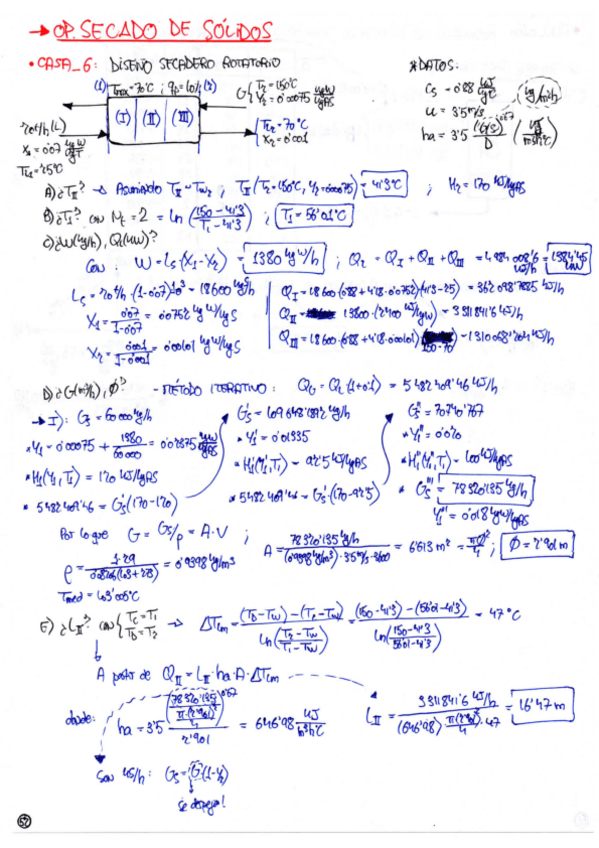 → OP. SECADO DE SÓLIDOS
• CASA_6: DISEÑO SECADERO ROTATORIO
* DATOS:
(1) → Tmax = 70°C ; qp = 10% (2)
G { T2 = 150°C
Y2 = 0'00075 kgW/kgAS
Cs = 0'88 kJ/kg°C
u = 3'5 m/s
ha = 3'5 (G's)^0'67 / D (kJ/m³h°C)
kg/m²h
(I) (II) (III)
20t/h (L)
X1 = 0'07
T = 25°C
T2 = 70°C
X2 = 0'001
A) ¿TII? → Asumiendo TII ~ Tw2 , TII (T2 = 150°C, Y2 = 0'00075) = 41'3°C ; H2 = 170 kJ/kgAS
B) ¿T1? con Nt = 2 = ln (150 - 41'3 / T1 - 41'3) ; T1 = 56'01°C
C) ¿W (kg/h), Q (kW)?
Con: W = Ls (X1 - X2) = 1380 kgW/h ; QT = QI + QII + QIII = 4984008'6 kJ/h = 1384'45 kW
Ls = 20t/h · (1 - 0'07) · 10³ = 18600 kgS/h
X1 = 0'07 / 1 - 0'07 = 0'0752 kgW/kgS
X2 = 0'001 / 1 - 0'001 = 0'00101 kgW/kgS
QI = 18600 · (0'88 + 4'18 · 0'0752)(41'3 - 25) = 362098'7885 kJ/h
QII = 1380 · (2400 kJ/kgW) = 3311841'6 kJ/h
QIII = 18600 · (0'88 + 4'18 · 0'00101) (150 - 70) = 1310068'204 kJ/h
D) ¿G (m³/h), Ø? - MÉTODO ITERATIVO: QG = QT (1 + 0'1) = 5482409'46 kJ/h
→ I): Gs = 60000 kg/h
* Y1 = 0'00075 + 1380 / 60000 = 0'02375 kgW/kgAS
* H1 (Y1, T1) = 120 kJ/kgAS
* 5482409'46 = G's (170 - 120)
G's = 109648'1892 kg/h
* Y'1 = 0'01335
* H'1 (Y'1, T1) = 92'5 kJ/kgAS
* 5482409'46 = G''s · (170 - 92'5)
G''s = 70740'767
* Y''1 = 0'020
* H''1 (Y''1, T1) = 100 kJ/kgAS
* G'''s = 78320'135 kg/h
Y'''1 = 0'018 kgW/kgAS
Por lo que G = Gs/ρ = A · V ;
A = 78320'135 kg/h / (0'9398 kg/m³) · 3'5 m/s · 3600 = 6'613 m² = πØ²/4 ; Ø = 2'901 m
ρ = 1 · 29 / 0'08206 (103 + 273) = 0'9398 kg/m³
Tmed = 103'005°C
E) ¿LII? con { TC = T1
TD = T2 → ΔTlm = (TD - Tw) - (TC - Tw) / ln (T2 - Tw / T1 - Tw) = (150 - 41'3) - (56'01 - 41'3) / ln (150 - 41'3 / 56'01 - 41'3) = 47°C
A partir de QII = LII · ha · A · ΔTlm
donde: ha = 3'5 (78320'135 / π(2'901)²/4)^0'67 / 2'901 = 646'98 kJ/m³h°C
LII = 3311841'6 kJ/h / (646'98) π(2'901)²/4 · 47 = 16'47 m
Son kgAS/h: Gs = G (1 - Y2)
se desprecia!
57